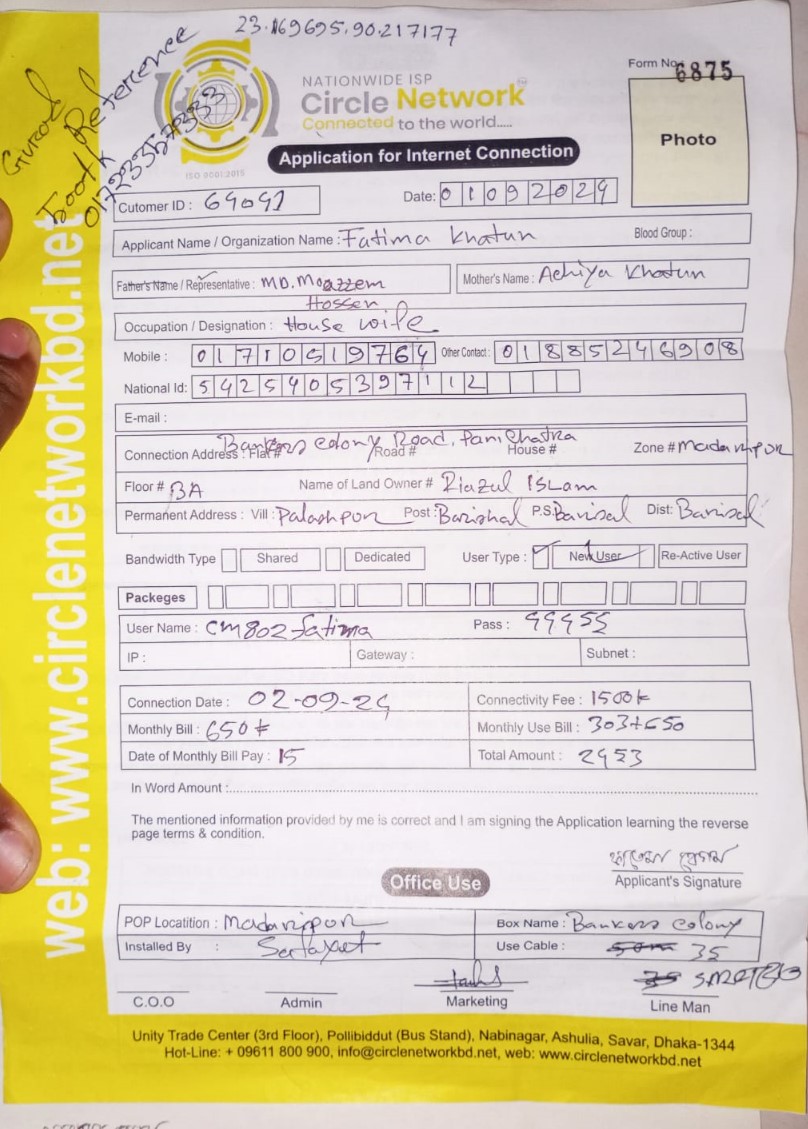 23.169695,90.217177
Reference
01723357333
NATIONWIDE ISP
Circle Network
Connected to the world.....
ISO 9001:2015
Form No: 6875
Photo
Application for Internet Connection
Cutomer ID : 64091
Date: 01092024
Applicant Name / Organization Name : Fatima Khatun Blood Group :
Father's Name / Representative : MD. Moazzem Hossen
Mother's Name : Achiya Khatun
Occupation / Designation : House wife
Mobile : 01710519764 Other Contact : 01885246908
National Id: 5425405397112
E-mail :
Connection Address : Flat # Bankers colony Road, Pani Chatra Road # House # Zone # Madaripur
Floor # 3A Name of Land Owner # Riazul Islam
Permanent Address : Vill : Palashpur Post : Barishal P.S. Barisal Dist: Barisal
Bandwidth Type Shared Dedicated User Type : New User Re-Active User
Packeges
User Name : cm802fatima Pass : 99955
IP : Gateway : Subnet :
Connection Date : 02-09-24 Connectivity Fee : 1500
Monthly Bill : 650 Monthly Use Bill : 303+650
Date of Monthly Bill Pay : 15 Total Amount : 2453
In Word Amount :
The mentioned information provided by me is correct and I am signing the Application learning the reverse
page terms & condition.
Applicant's Signature
Office Use
POP Locatition : Madaripur Box Name : Bankers colony
Installed By : Use Cable : 35
C.O.O Admin Marketing Line Man
Unity Trade Center (3rd Floor), Pollibiddut (Bus Stand), Nabinagar, Ashulia, Savar, Dhaka-1344
Hot-Line: + 09611 800 900, info@circlenetworkbd.net, web: www.circlenetworkbd.net
web: www.circlenetworkbd.net